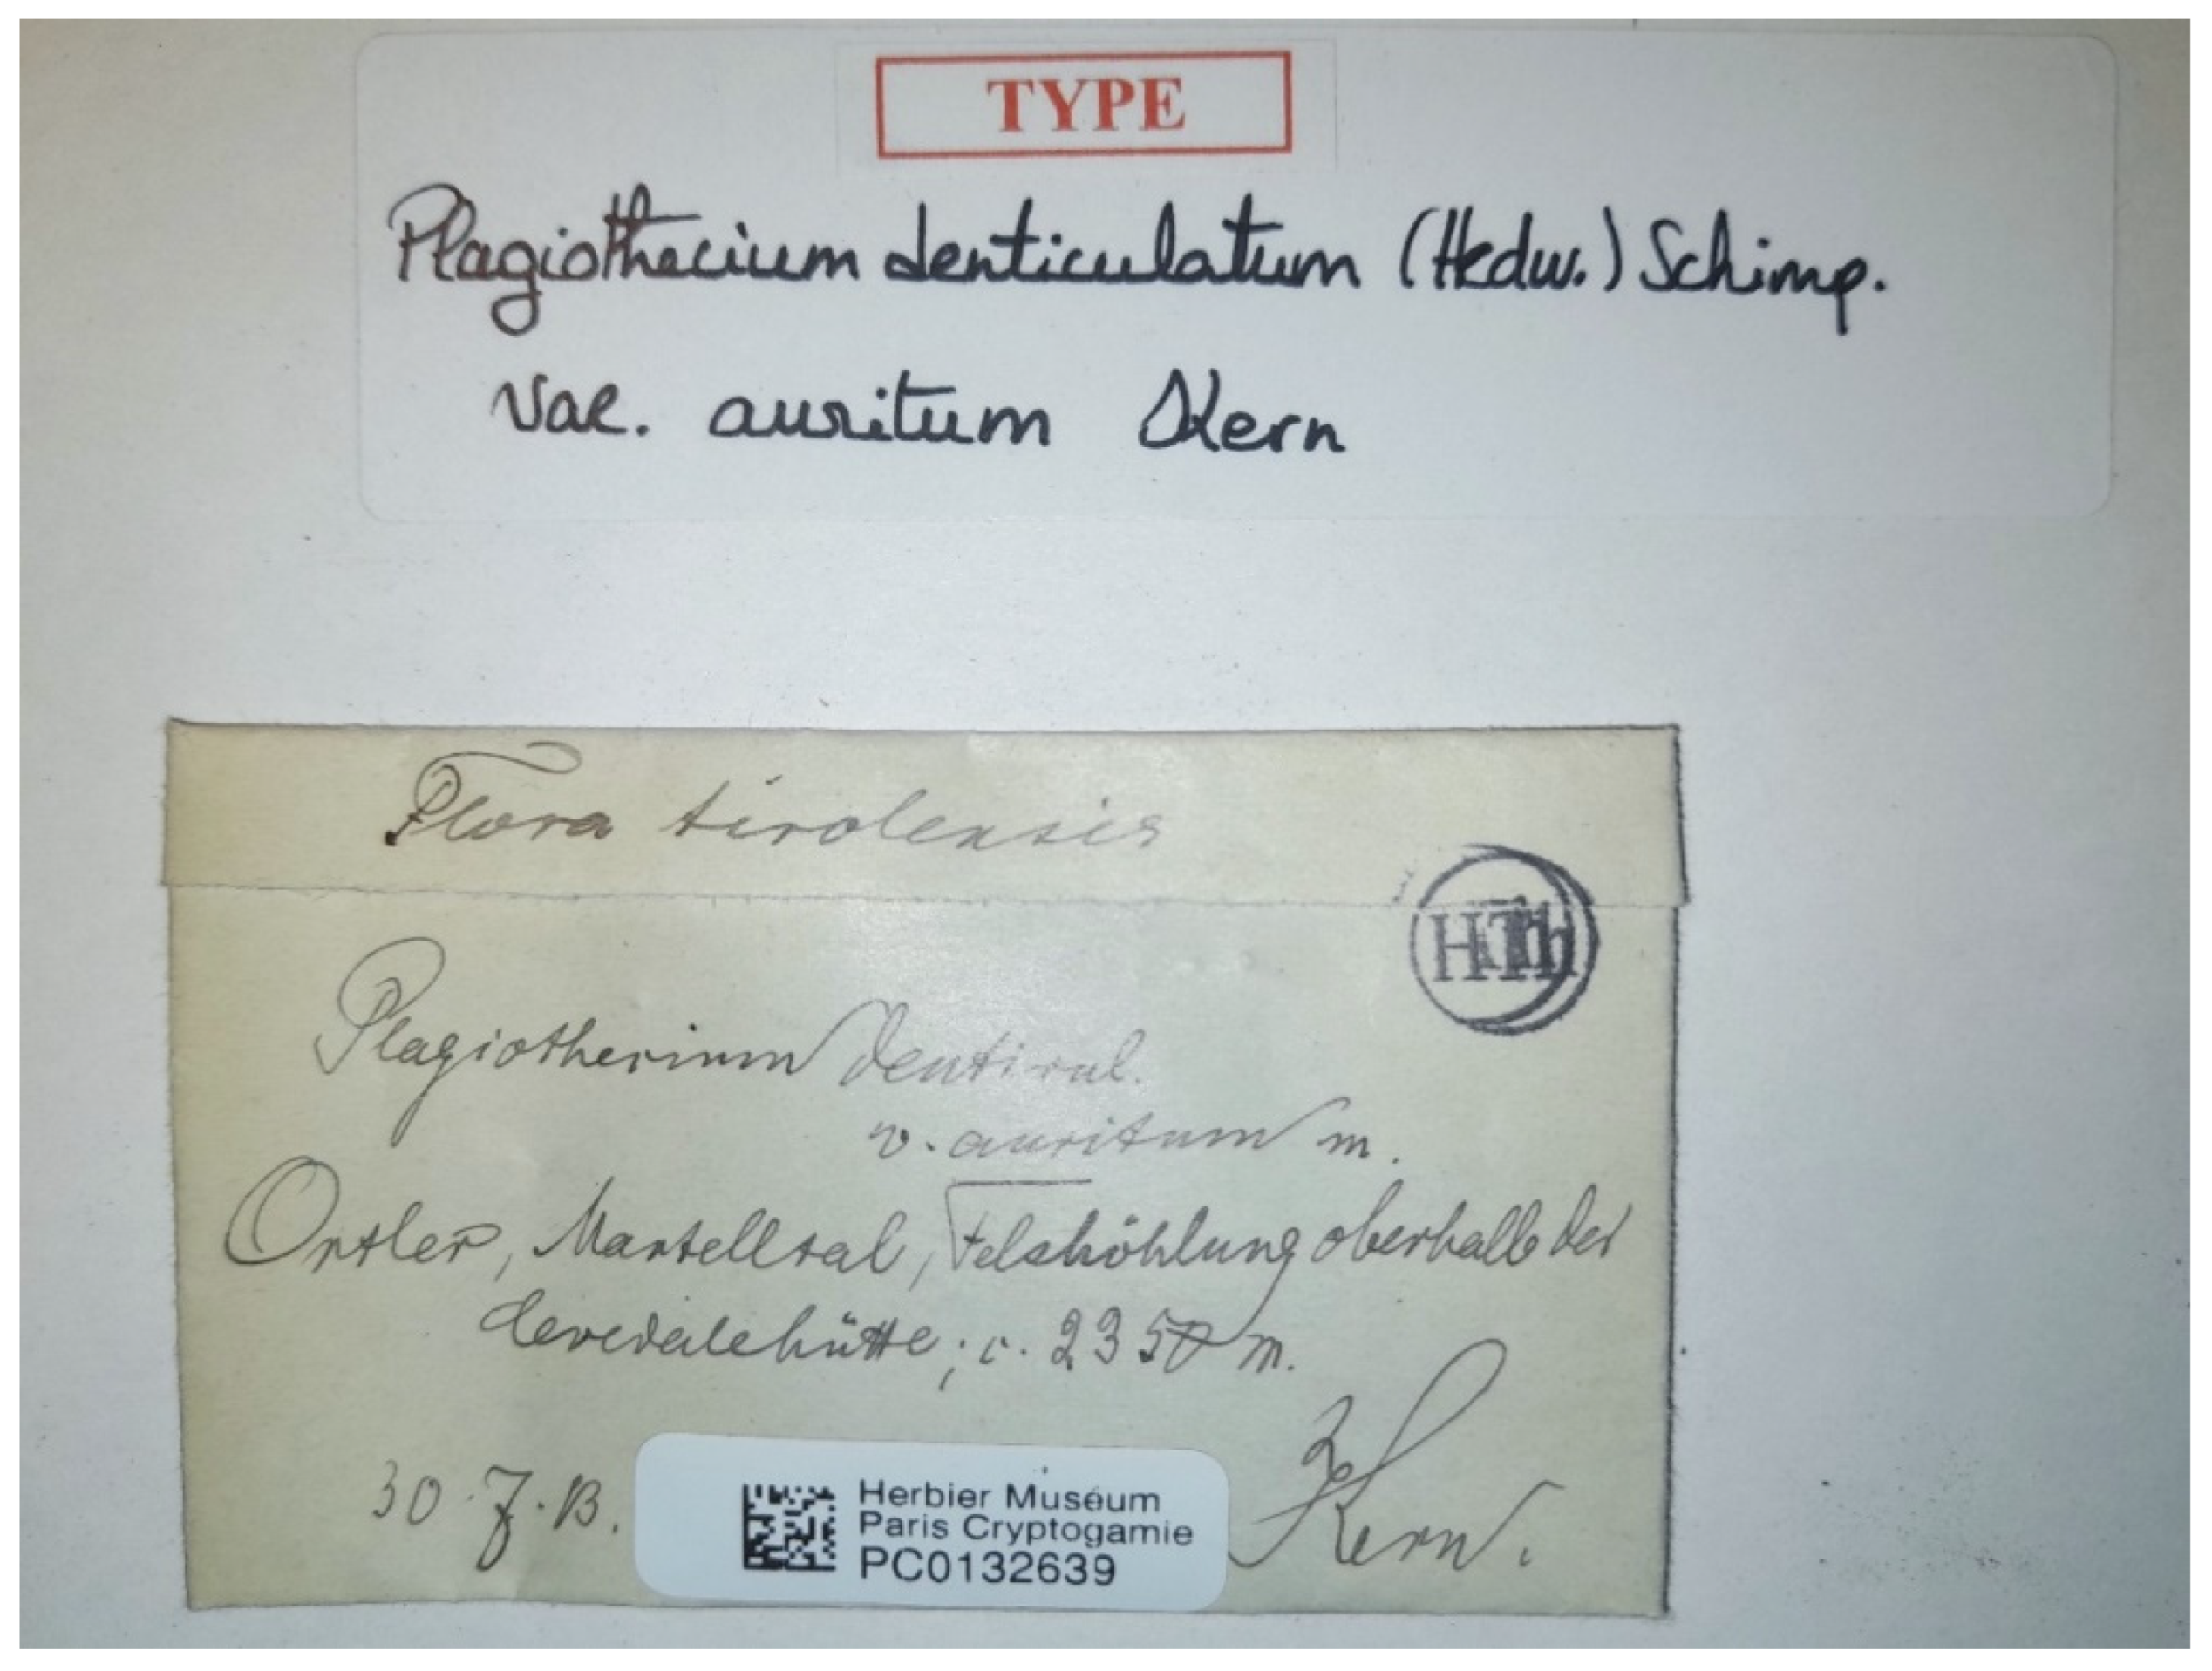 TYPE
Plagiothecium denticulatum (Hedw.) Schimp.
var. auritum Kern
Flora tirolensis
HTh
Plagiothecium denticul.
v. auritum m.
Ortler, Martelltal, Felshöhlung oberhalb der
Cevedalehütte; c. 2350 m.
30.7.13.
Kern.
Herbier Muséum
Paris Cryptogamie
PC0132639